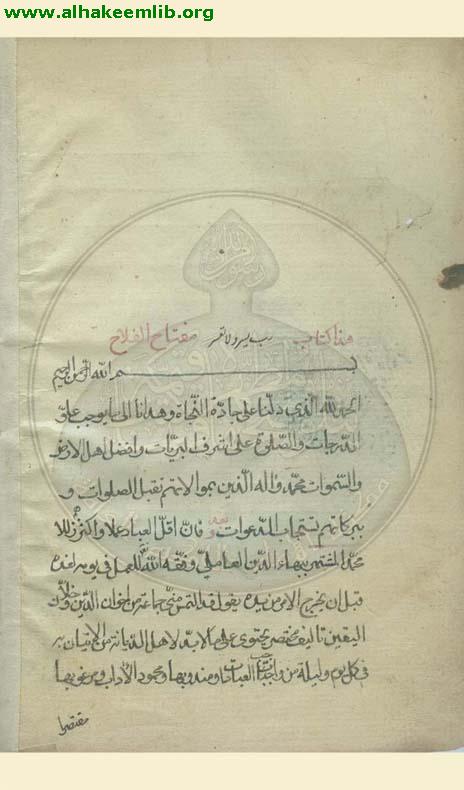 www.alhakeemlib.org
هذا كتاب رب يسر ولا تعسر مفتاح الفلاح
بسم الله الرحمن الرحيم
الحمد لله الذي دلنا على جادة النجاة وهدانا الى ما يوجب علو
الدرجات والصلوة على اشرف البريات وافضل اهل الارض
والسموات محمد واله الذين بموالاتهم تقبل الصلوات و
ببركاتهم تستجاب الدعوات وبعد فان اقل العباد عملا واكثرهم زللا
محمد المشتهر ببهاء الدين العاملي وفقه الله للعمل في يومه لغده
قبل ان يخرج الامر من يده يقول قد التمس مني جماعة من اخوان الدين وخلان
اليقين تاليف مختصر يحتوي على ما لا بد لاهل الديانة من الاتيان به
في كل يوم وليلة من واجبات العبادات ومندوبها ومحمود الاداب ومرغوبها
مقتصرا